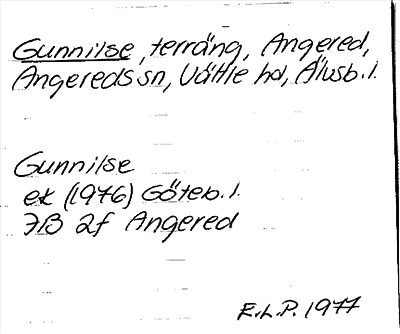 Gunnilse, terräng, Angered,
Angereds sn, Vättle hd, Älvsb. l.
Gunnilse
ek (1976) Göteb. l.
7B 2f Angered
R.L.P. 1977